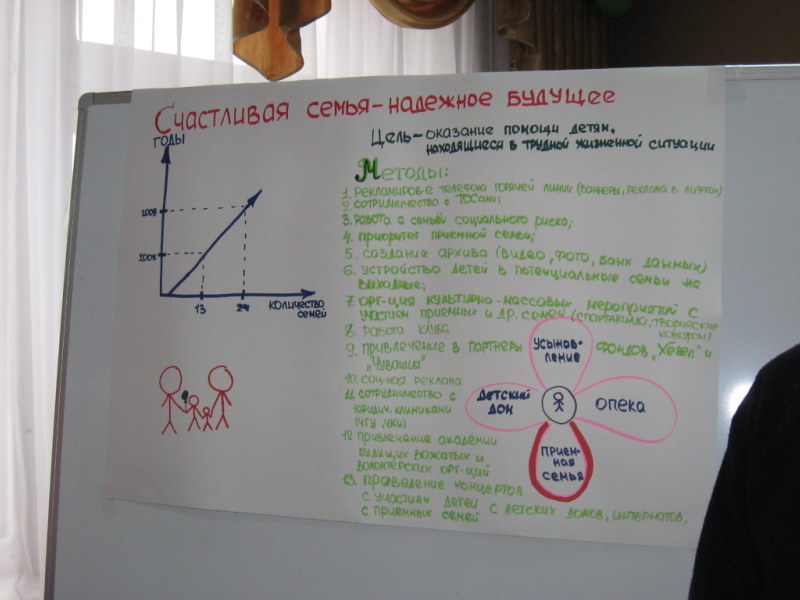 Счастливая семья-надежное будущее
годы
Цель-оказание помощи детям,
находящиеся в трудной жизненной ситуации
Методы:
1. рекламиров-е телефона горячей линии (баннеры, реклама в лифтах)
2. сотрудничество с ТОСами;
3. работа с семьей социального риска;
4. приоритет приемной семьи;
5. создание архива (видео, фото, банк данных)
6. устройство детей в потенциальные семьи на
выходные;
7. орг-ция культурно-массовых мероприятий с
участием приемных и др. семей (спартакиада, творческие
конкурсы)
8. работа клуба
9. привлечение в партнеры фондов „Хевел" и
„Чувашия"
10. соц-ная реклама
11. сотрудничество с
юридич. клиниками
(ЧГУ, ЧКИ)
12. привлечение академии
будущих вожатых и
волонтерских орг-ций
13. проведение концертов
с участием детей с детских домов, интернатов,
с приемных семей
2009
2008
13
24
количество
семей
Усынов-
ление
Детский
дом
опека
Прием-
ная
семья